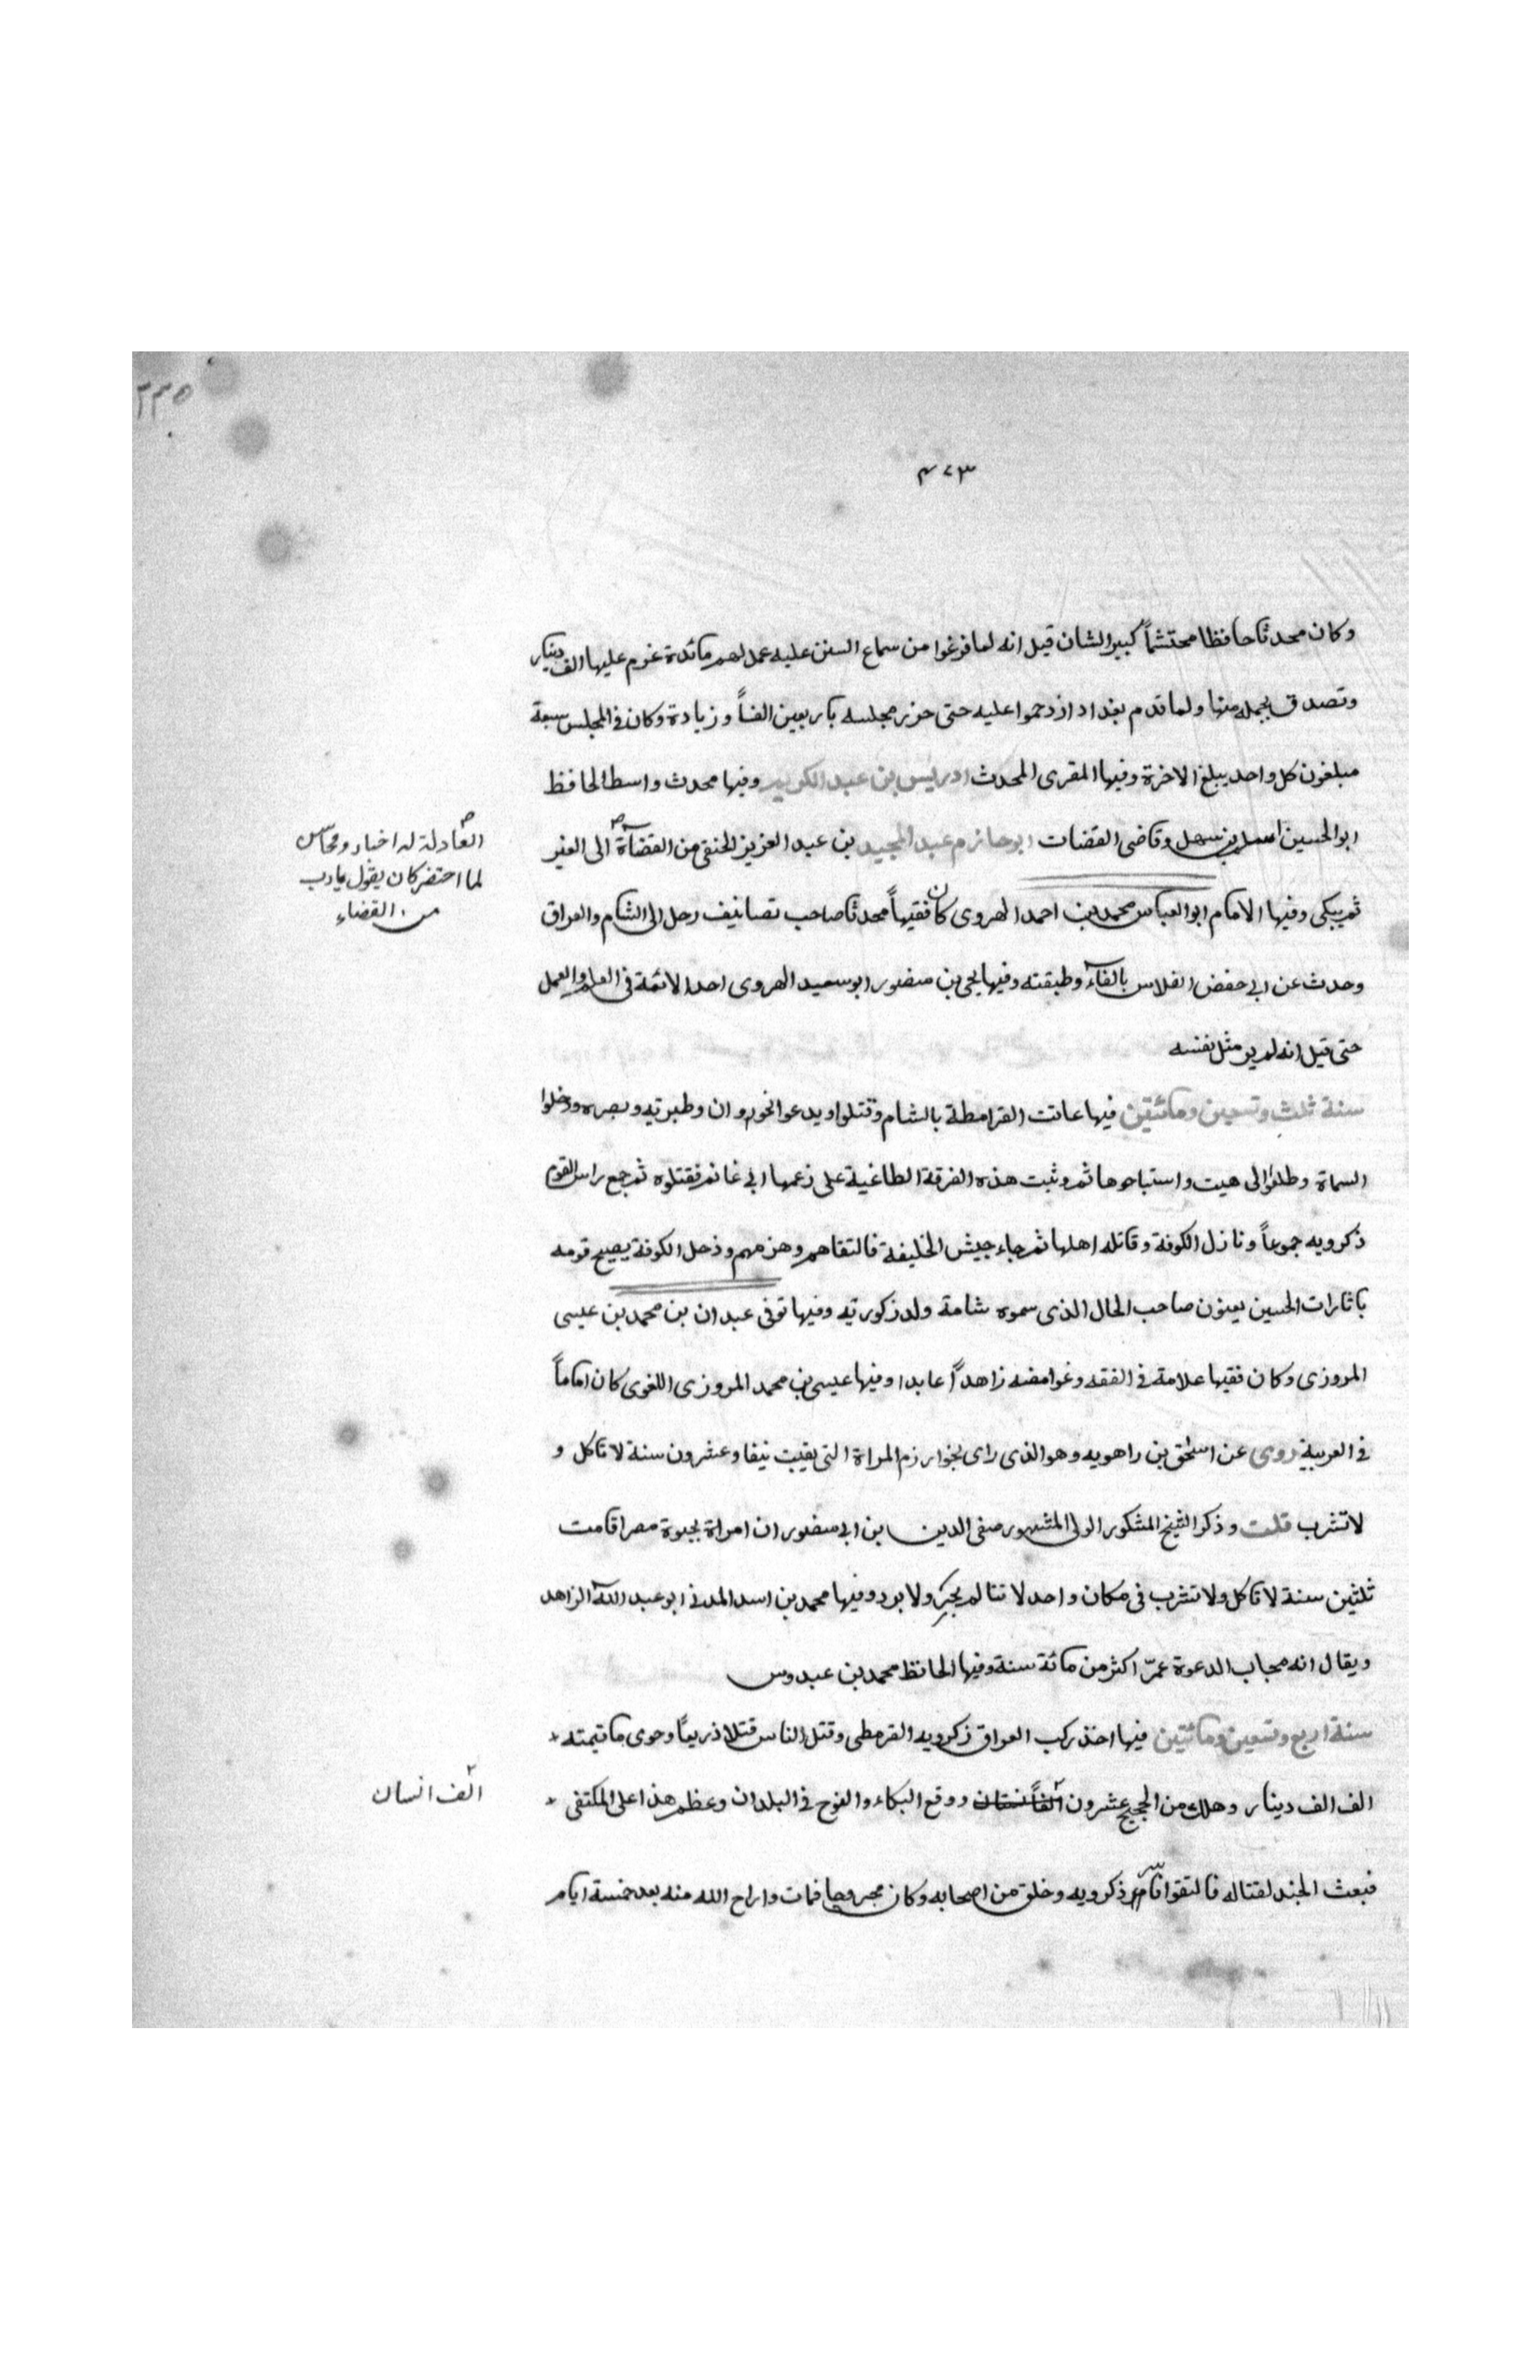 ٢٣٥
٤٢٣
وكان محدثا حافظا محتشماً كبير الشان قيل انه لما فرغوا من سماع السنن عليه عمل لهم مائدة غرم عليها الف دينار
وتصدق بجمله منها ولما قدم بغداد ازدحموا عليه حتى حزر مجلسه باربعين الفاً وزيادة وكان فى المجلس سبعة
مبلغون كل واحد يبلغ الاخرة وفيها المقرى المحدث ادريس بن عبد الكريم وفيها محدث واسط الحافظ
ابو الحسين اسلم بن سهل وقاضى القضات ابو حازم عبد المجيد بن عبد العزيز الحنفى من القضاة الى العبر
العادلة له اخبار ومحاسن
لما احتضر كان يقول يا رب
من القضاء
ثم يبكى وفيها الامام ابو العباس محمد بن احمد الهروى كان فقيهاً محدثا صاحب تصانيف رحل الى الشام والعراق
وحدث عن ابى حفض الفلاس بالفاء وطبقته وفيها يحيى بن منصور ابو سعيد الهروى احد الائمة فى العلم والعمل
حتى قيل انه لم ير مثل نفسه
سنة ثلث وتسعين ومائتين فيها عاتت القرامطة بالشام وقتلوا وبدعوا بخوران وطبرية وبصره ودخلوا
السماة وطلفوا الى هيت واستباحوها ثم وثبت هذه الفرقة الطاغية على زعمها ابى غانم فقتلوه ثم جمع راس القوم
ذكرويه جموعاً ونازل الكوفة وقاتله اهلها ثم جاء جيش الخليفة فالتقاهم وهزمهم ودخل الكوفة يصيح قومه
يا ثارات الحسين يعنون صاحب الخال الذى سموه شامة ولد زكوريه وفيها توفى عبدان بن محمد بن عيسى
المروزى وكان فقيها علامة فى الفقه وغوامضه زاهداً عابدا وفيها عيسى بن محمد المروزى اللغوى كان اماماً
فى العربية روى عن اسحق بن راهويه وهو الذى راى بخوارزم المراة التى بقيت نيفا وعشرون سنة لا تاكل و
لا تشرب قلت وذكر الشيخ المشكور الولى المشهور صفى الدين بن ابى منصور ان امراة بجيزة مصر اقامت
ثلثين سنة لا تاكل ولا تشرب فى مكان واحد لا تتالم بحر ولا برد وفيها محمد بن اسد المدنى ابو عبد الله الزاهد
ويقال انه مجاب الدعوة عمّر اكثر من مائة سنة وفيها الحافظ محمد بن عبدوس
سنة اربع وتسعين ومائتين فيها اخذ ركب العراق زكرويه القرمطى وقتل الناس قتلا ذريعاً وحوى ما قيمته
الف الف دينار وهلك من الحجيج عشرون ووقع البكاء والنوح فى البلدان وعظم هذا على المكتفى
الف انسان
فبعث الجند لقتاله فالتقوا فاسر ذكرويه وخلق من اصحابه وكان مجروحا فمات واراح الله منه بعد خمسة ايام